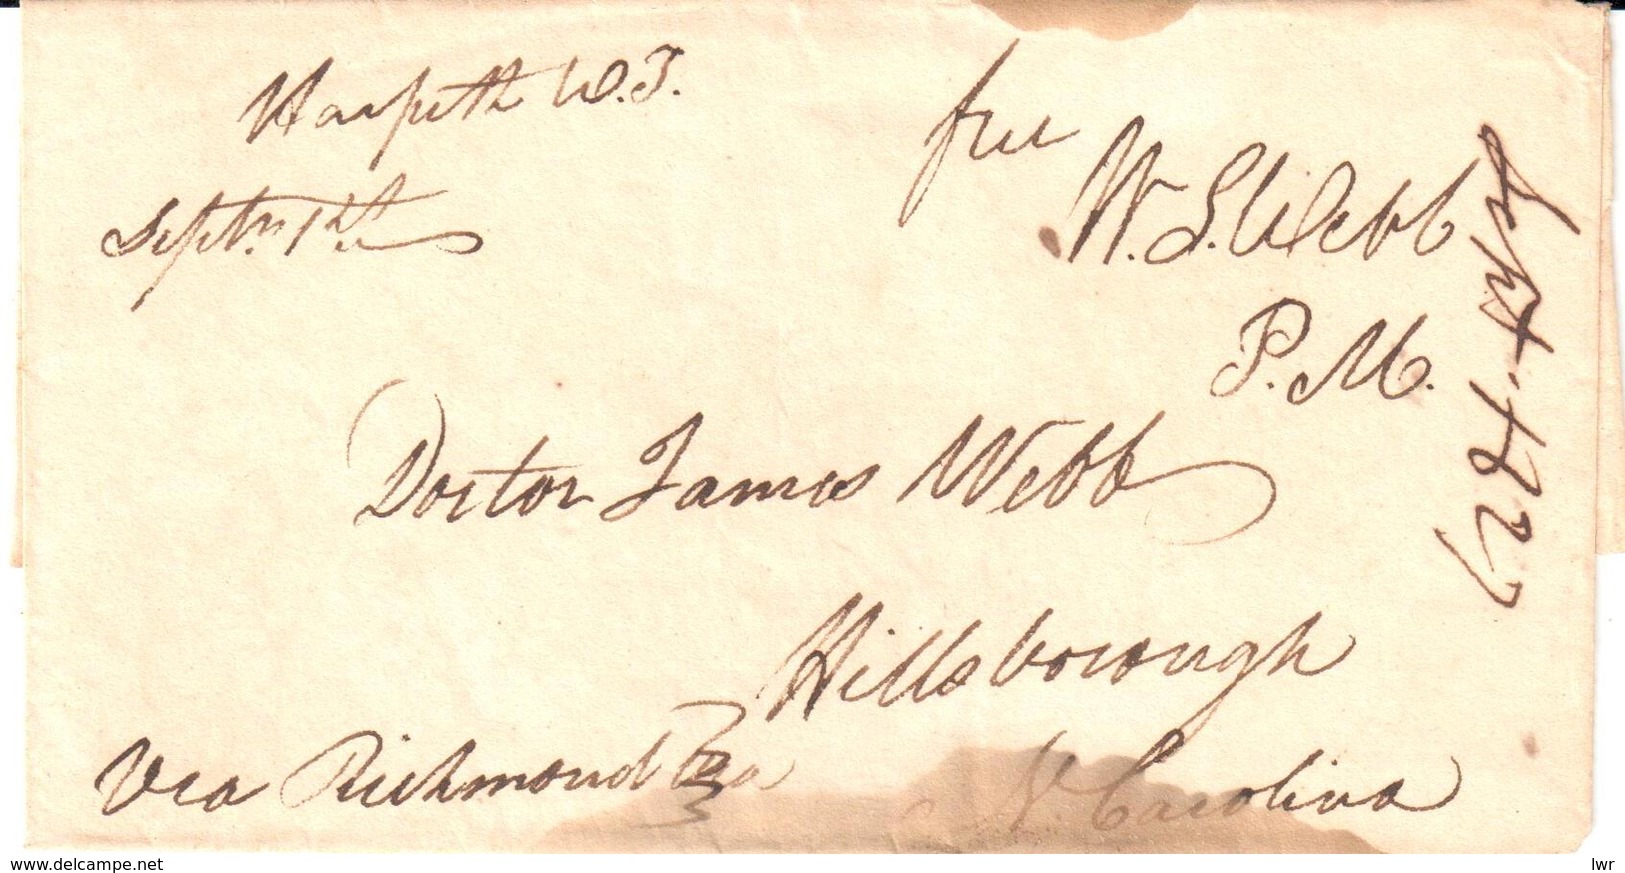 Harpeth W.T.
Septr. 1st.
free
W. S. Webb
P.M.
Doctor James Webb
Hillsborough
N. Carolina
Via Richmond Va
Sept. 1
www.delcampe.net
lwr